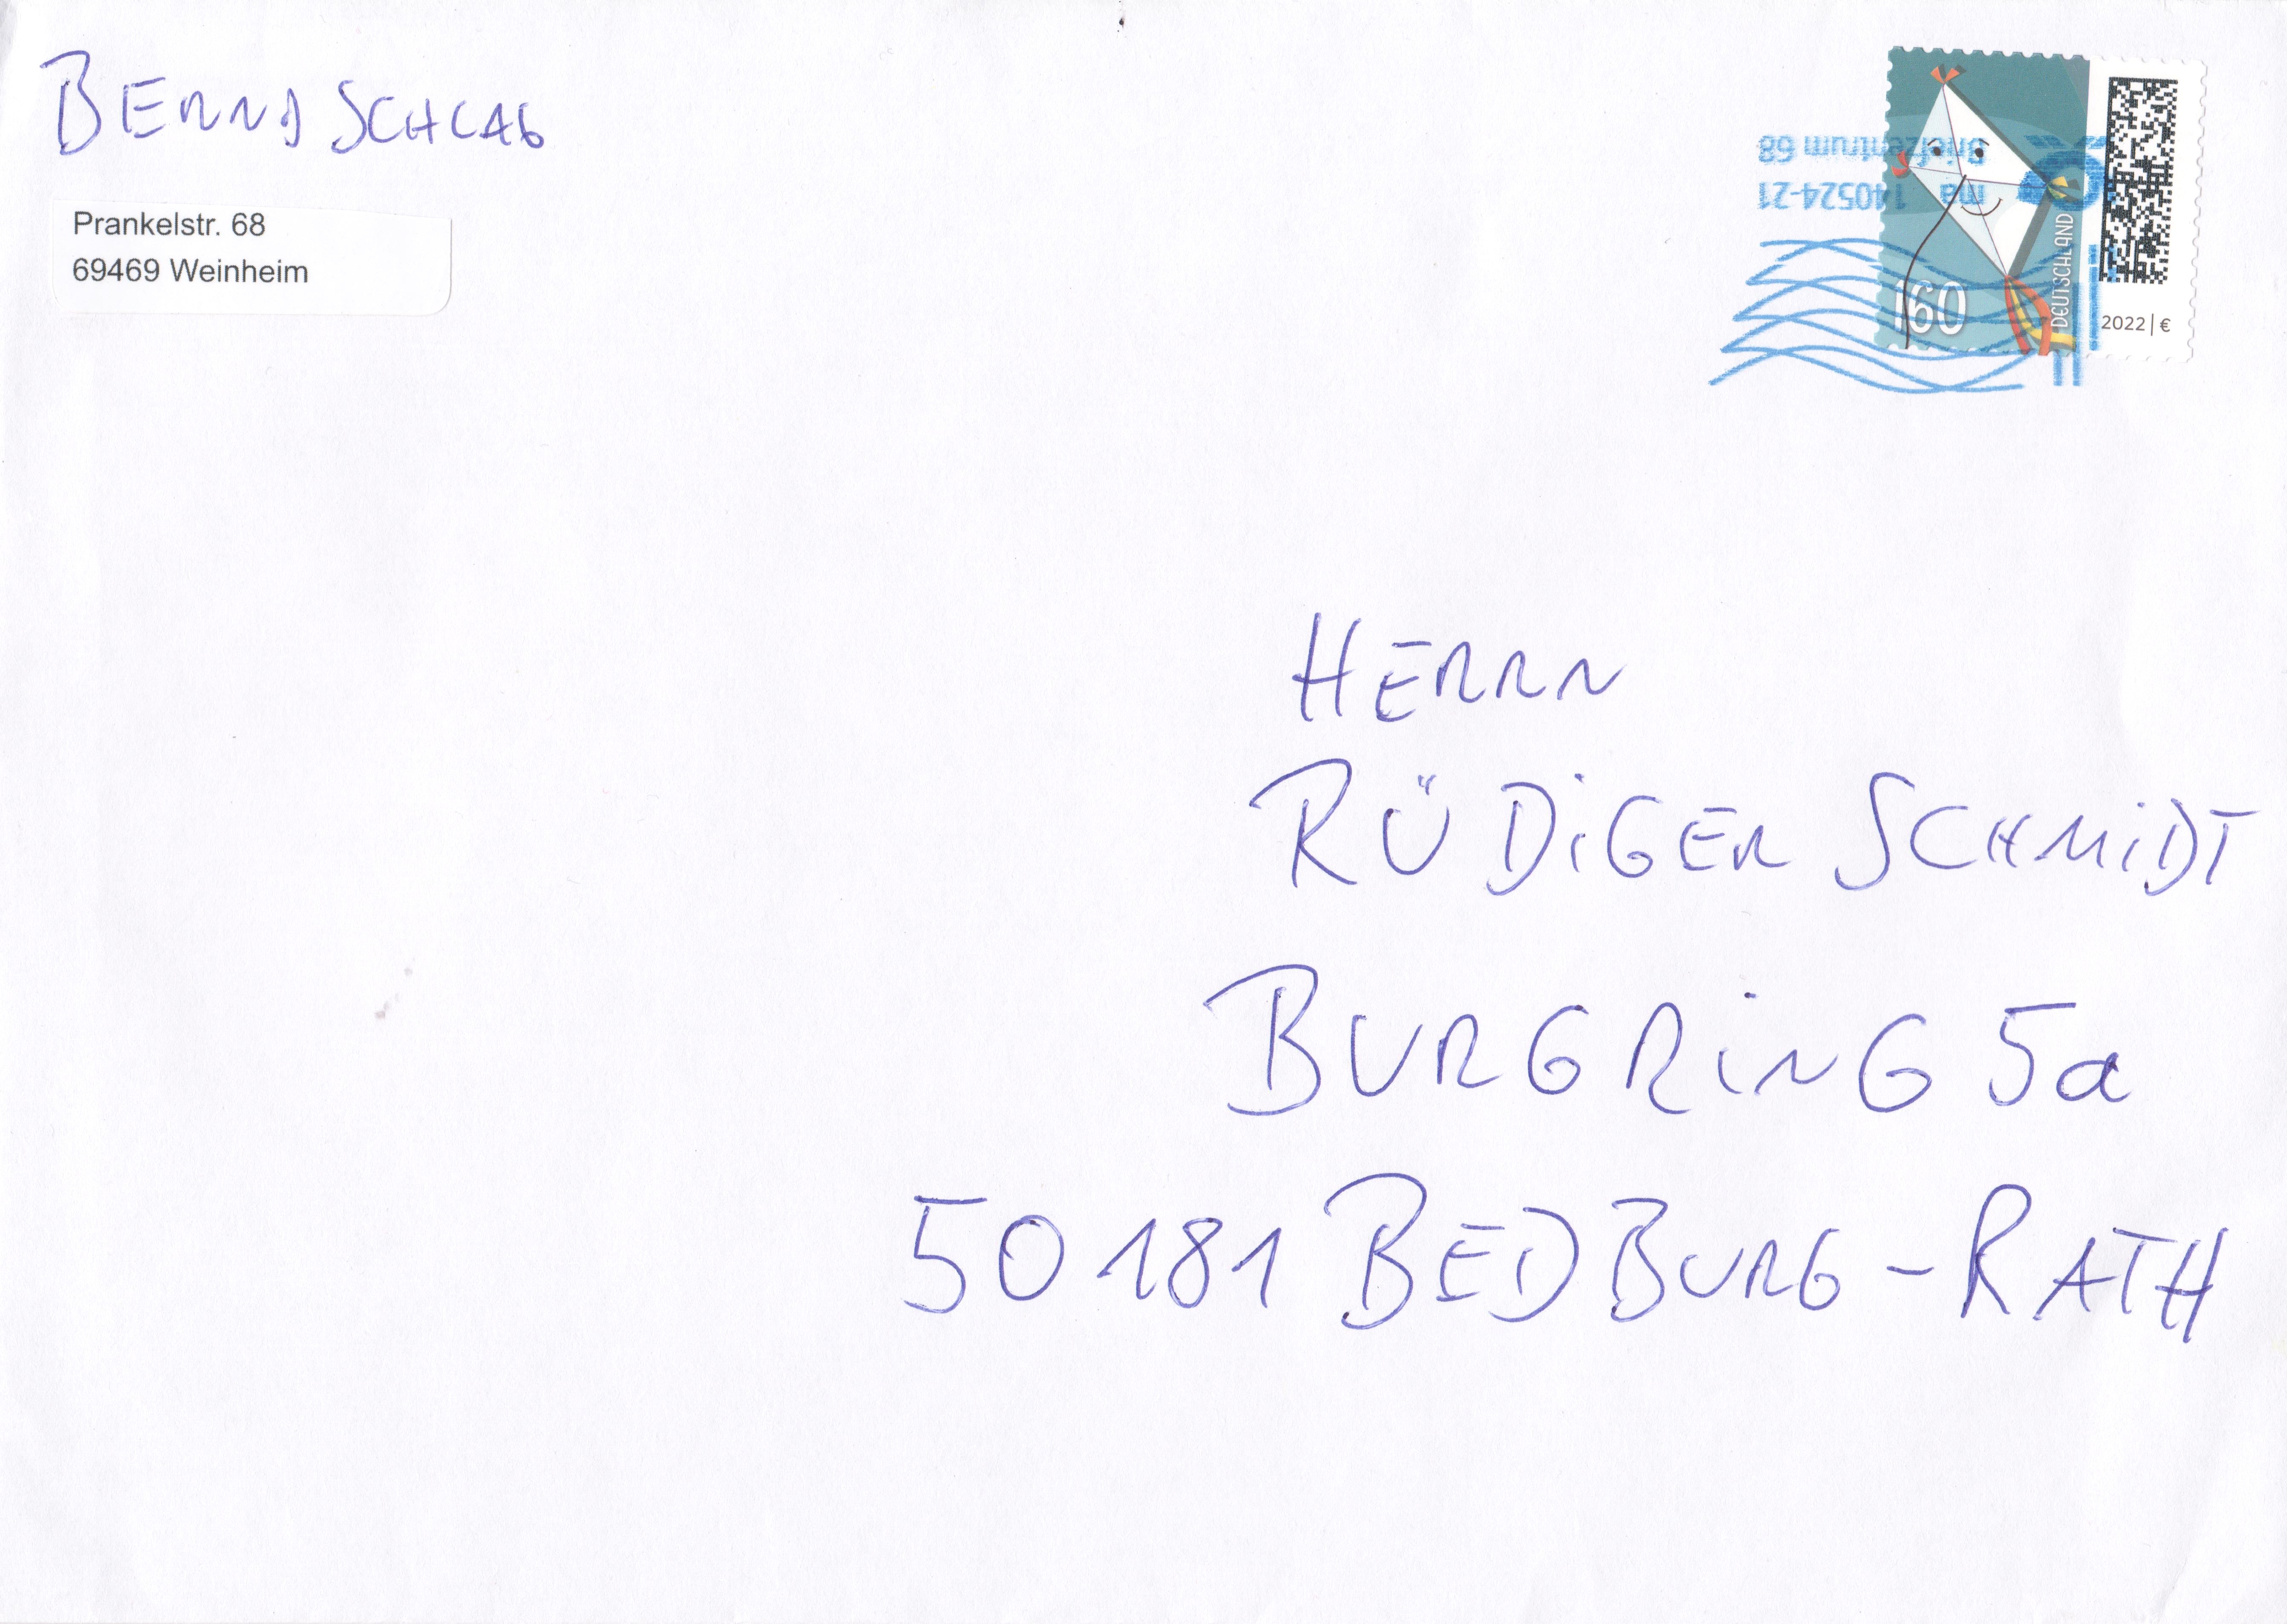 BERND SCHLAG
Prankelstr. 68
69469 Weinheim
Briefzentrum 68
ma 140524-21
160
DEUTSCHLAND
2022 | €
HERRN
RÜDiGER SCHMiDT
BURGRiNG 5a
50181 BEDBURG-RATH